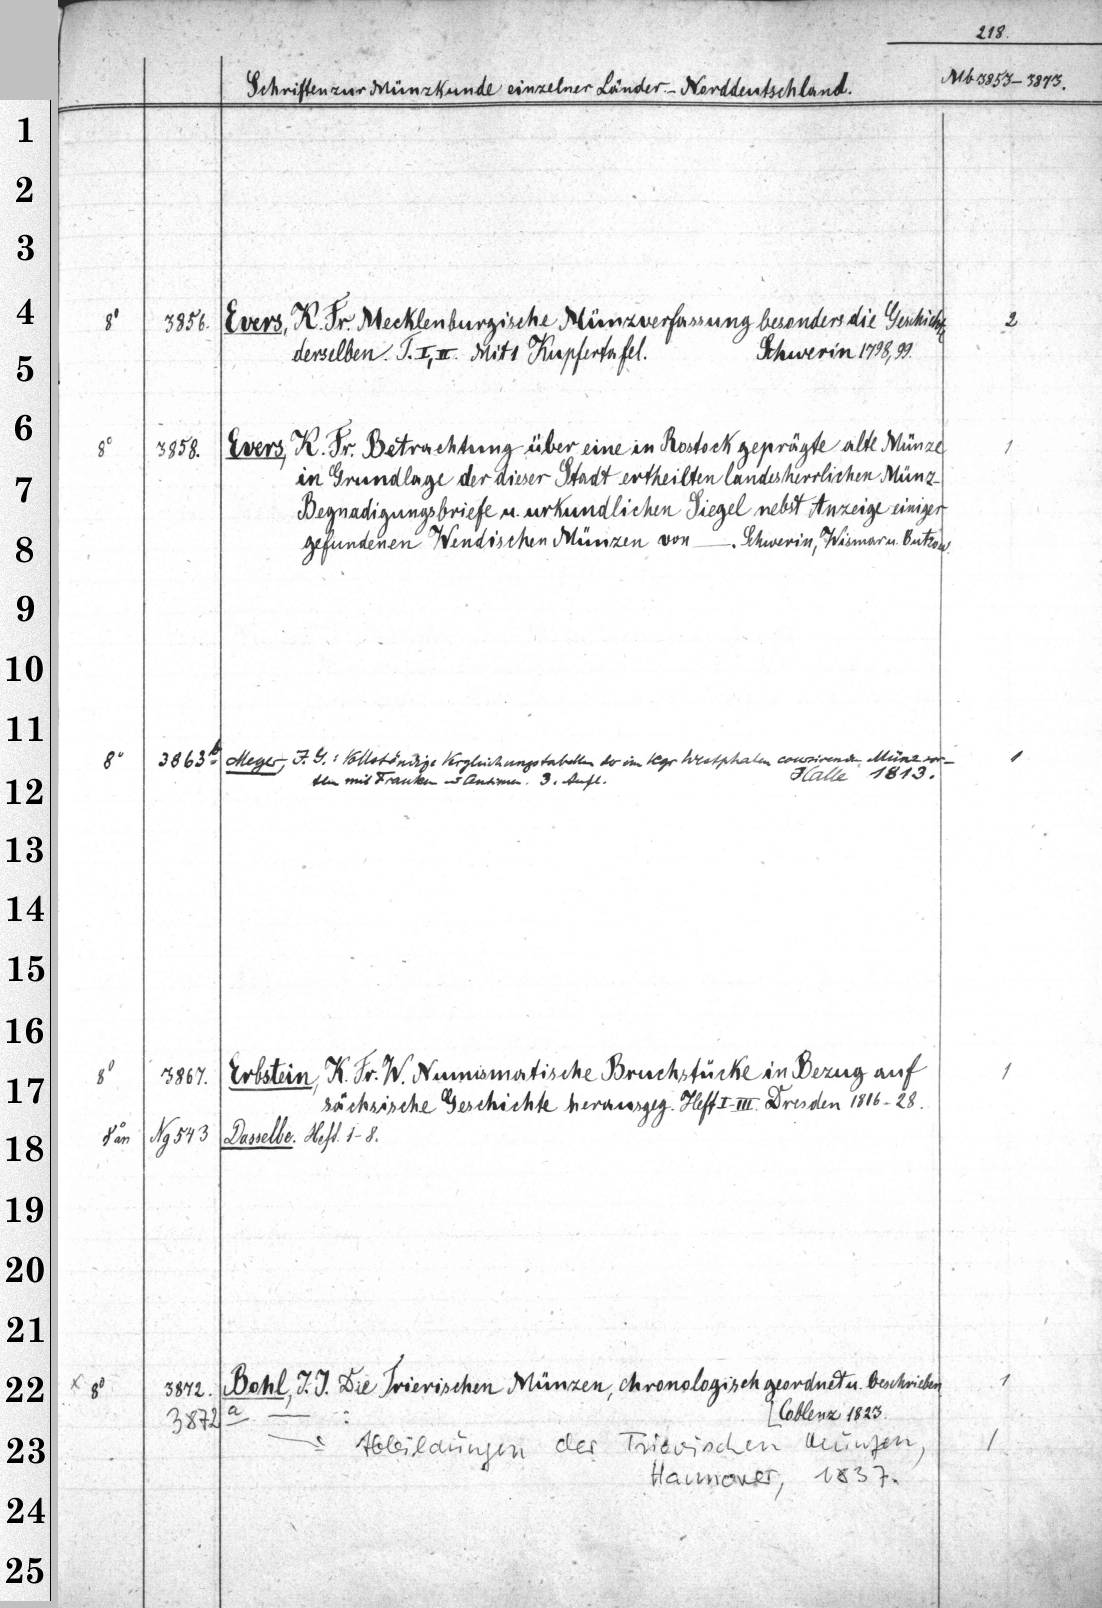 218.
Schriften zur Münzkunde einzelner Länder. - Norddeutschland. Mb 3853-3873.
1
2
3
4
8° 3856. Evers, K. Fr. Mecklenburgische Münzverfassung besonders die Geschichte 2
derselben. T. I, II. Mit 1 Kupfertafel. Schwerin 1798,99.
5
6
8° 3858. Evers, K. Fr. Betrachtung über eine in Rostock geprägte alte Münze 1
in Grundlage der dieser Stadt ertheilten landesherrlichen Münz-
7
Begnadigungsbriefe u. urkundlichen Siegel nebst Anzeige einiger
gefundenen Wendischen Münzen von —. Schwerin, Wismar u. Butzow.
8
9
10
11
8° 3863b Meyer, J. G.: Vollständige Vergleichungstabellen der im Kgr. Westphalen coursirende Münzsor- 1
ten mit Franken u Centimen. 3. Aufl. Halle 1813.
12
13
14
15
16
8° 3867. Erbstein, K. Fr. W. Numismatische Bruchstücke in Bezug auf 1
17
sächsische Geschichte herausgeg. Heft I-III. Dresden 1816-28.
8° an Ng 543 Dasselbe. Heft. 1-8.
18
19
20
21
22
x 8° 3872. Bohl, J. J. Die Trierischen Münzen, chronologisch geordnet u. beschrieben 1
3872 a — : [Coblenz 1823.
23
Abbildungen der Trierischen Münzen, 1
Hannover, 1837.
24
25